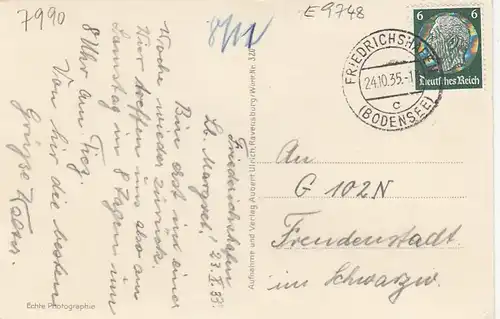 7990
E 9748
6 6
Deutsches Reich
FRIEDRICHSHAFEN
24.10.35.-1
c
(BODENSEE)
Friedrichshafen
23.X.35.
Lb. Margret!
Bin erst in einer
Woche wieder zurück.
Wir treffen uns also am
Samstag in 8 Tagen um
8 Uhr am
Von hir die besten
Grüße
An
G 102 N
Freudenstadt
im Schwarzw
Echte Photographie
Aufnahme und Verlag Aubert Ulrich, Ravensburg/Wttbg. Nr.